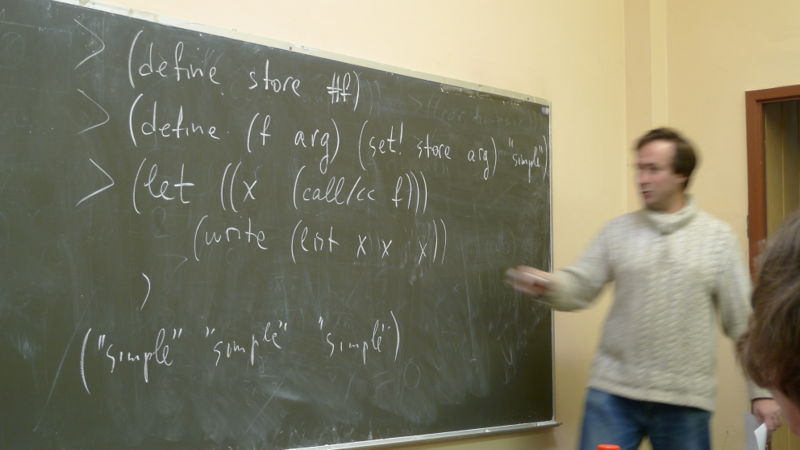 > (define store #f)
> (define (f arg) (set! store arg) "simple")
> (let ((x (call/cc f)))
(write (list x x x))
)
("simple" "simple" "simple")